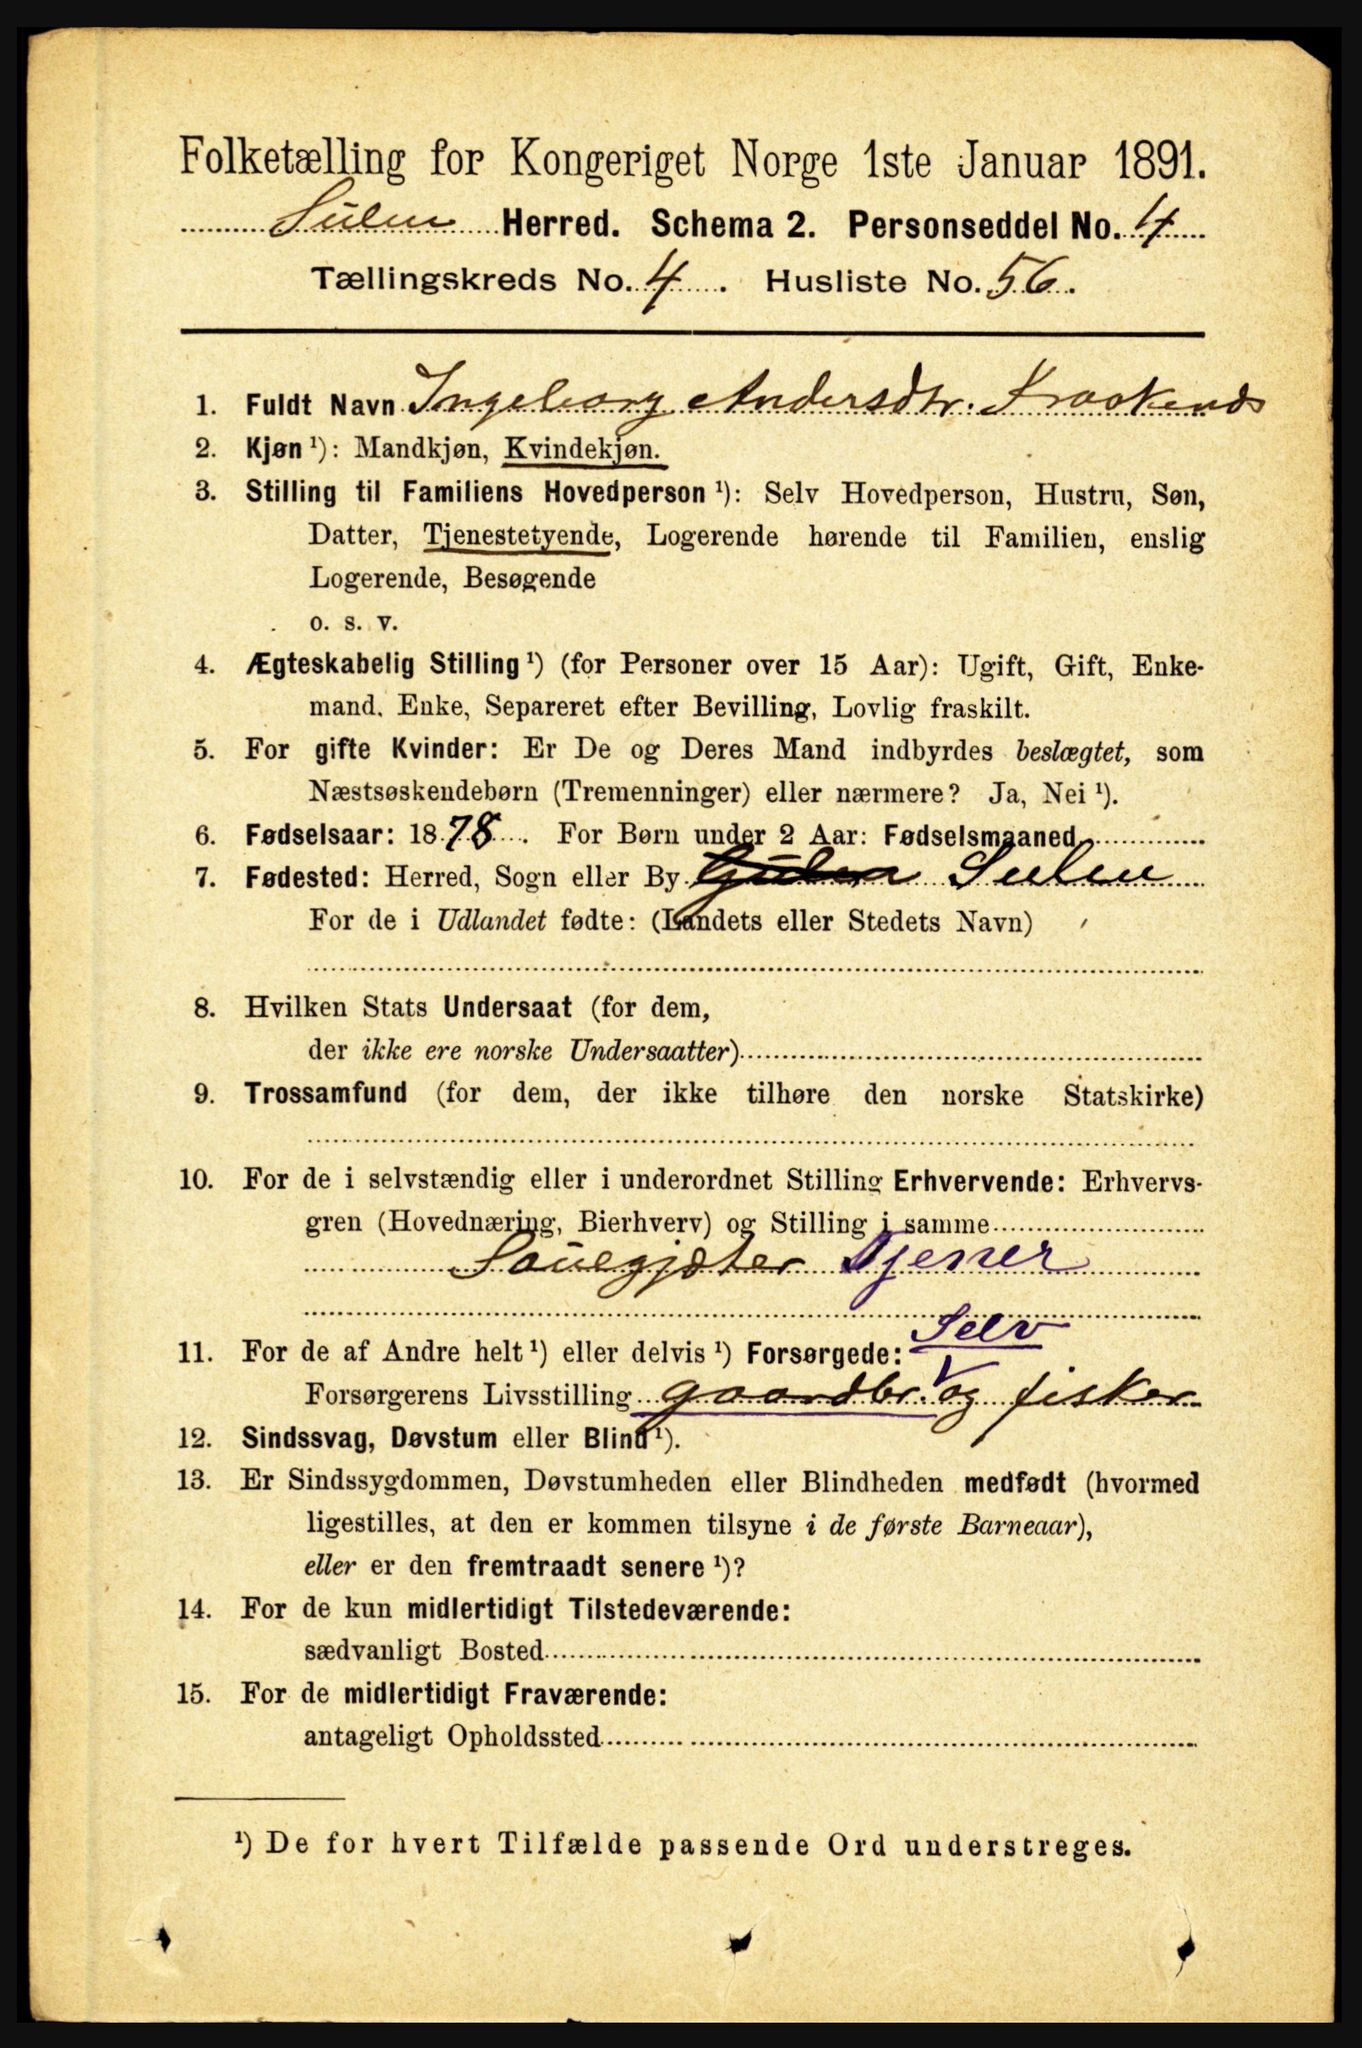 Folketælling for Kongeriget Norge 1ste Januar 1891.
Sulen Herred. Schema 2. Personseddel No. 4
Tællingskreds No. 4. Husliste No. 56.
1. Fuldt Navn Ingeborg Andersdtr.
2. Kjøn ¹): Mandkjøn, Kvindekjøn.
3. Stilling til Familiens Hovedperson ¹): Selv Hovedperson, Hustru, Søn,
Datter, Tjenestetyende, Logerende hørende til Familien, enslig
Logerende, Besøgende
o. s. v.
4. Ægteskabelig Stilling ¹) (for Personer over 15 Aar): Ugift, Gift, Enke-
mand, Enke, Separeret efter Bevilling, Lovlig fraskilt.
5. For gifte Kvinder: Er De og Deres Mand indbyrdes beslægtet, som
Næstsøskendebørn (Tremenninger) eller nærmere? Ja, Nei ¹).
6. Fødselsaar: 1878. For Børn under 2 Aar: Fødselsmaaned
7. Fødested: Herred, Sogn eller By Gulen Sulen
For de i Udlandet fødte: (Landets eller Stedets Navn)
8. Hvilken Stats Undersaat (for dem,
der ikke ere norske Undersaatter)
9. Trossamfund (for dem, der ikke tilhøre den norske Statskirke)
10. For de i selvstændig eller i underordnet Stilling Erhvervende: Erhvervs-
gren (Hovednæring, Bierhverv) og Stilling i samme
Sauegjæter Tjener
Selv
11. For de af Andre helt ¹) eller delvis ¹) Forsørgede:
Forsørgerens Livsstilling gaardbr. og fisker
12. Sindssvag, Døvstum eller Blind ¹).
13. Er Sindssygdommen, Døvstumheden eller Blindheden medfødt (hvormed
ligestilles, at den er kommen tilsyne i de første Barneaar),
eller er den fremtraadt senere ¹)?
14. For de kun midlertidigt Tilstedeværende:
sædvanligt Bosted
15. For de midlertidigt Fraværende:
antageligt Opholdssted
¹) De for hvert Tilfælde passende Ord understreges.